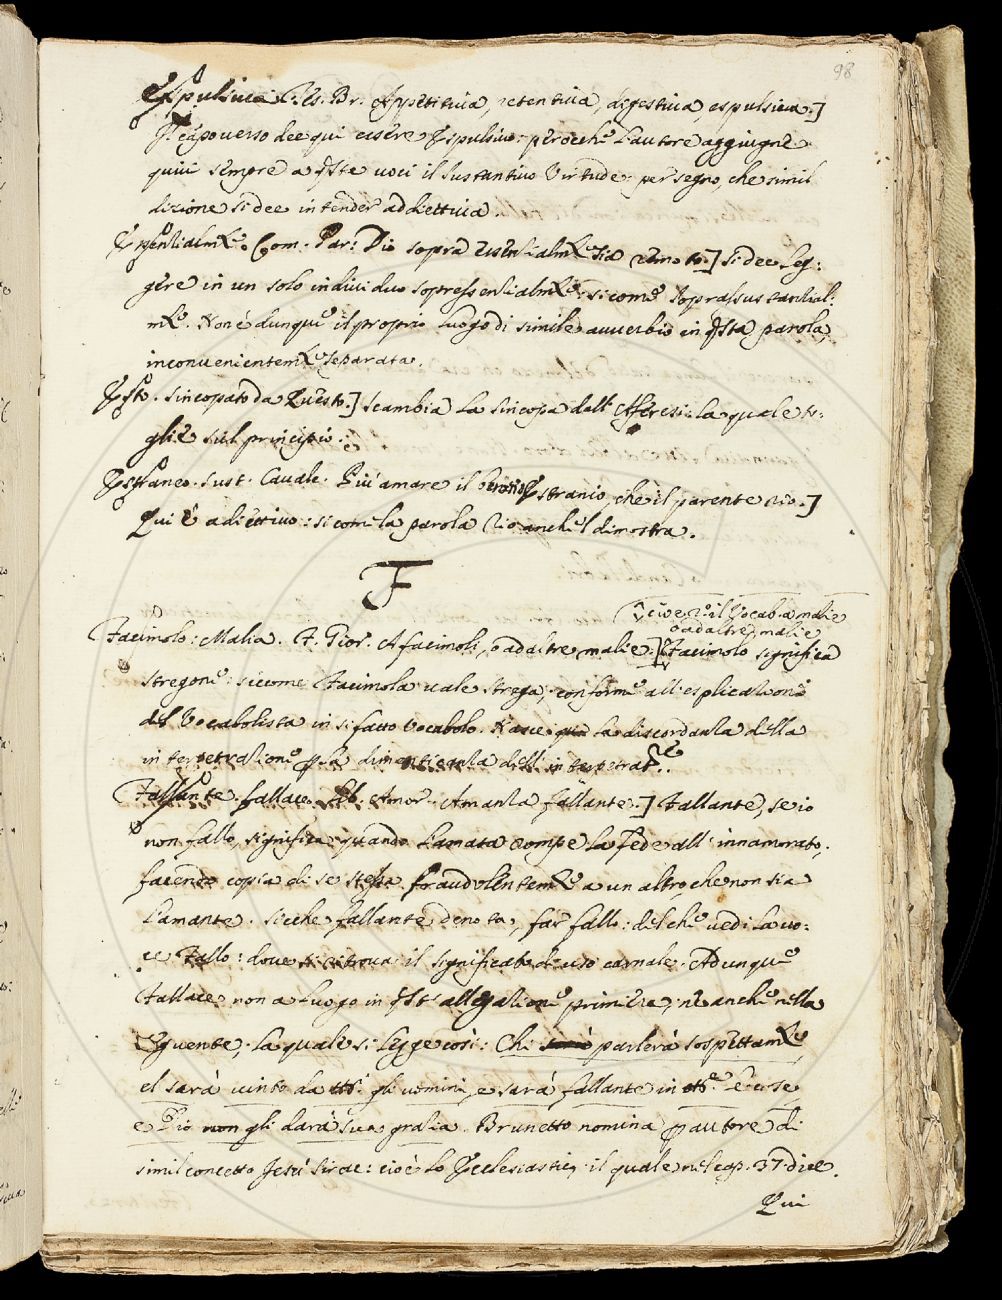 98
Espulsiva. Tes. Br. Appetitiva, retentiva, digestiva, espulsiva.]
Il capoverso dee qui essere Espulsivo: però che l'autore aggiugne
quivi sempre a q̃ste voci il sustantivo Virtude: per segno, che simil
dizione si dee intender addiettiva.
Com. Par: Dio sopra essentialm.e sia remoto.] si dee leg:
gere in un solo individuo sopressentialm.e: sicome soprassustantial:
m.e. Non è dunque il proprio luogo di simile avverbio in q̃sta parola,
inconvenientem.e separata.
Esto. sincopato da Questo.] scambia la sincopa dall' Aferesi: la quale to:
glie sul principio.
Estraneo. sust. Cavalc. Più amare il Estranio, che il parente rio.]
Qui è adiettivo: si come la parola Rio anche 'l dimostra.
F
il Vocab. a malie
o ad altre malie
Facimolo: Malia. F. Gior. A facimoli, o ad altre malie.] Facimolo significa
stregone: siccome Facimola vale strega; conforme all' esplicatione
del Vocabolista in sifatto vocabolo. Nasce quin la discordanza della
interpetratione p la dimenticanza dell' interpetrate.
Fallante. fallace. Lib. Amor. Amanza fallante.] Fallante, se io
non fallo, significa: quando l'amata rompe la fede all' innamorato,
facendo copia di se stessa fraudolentem.e a un altro, che non sia
l'amante. Sicche fallante denota, far fallo: del che vedi la vo:
ce Fallo: dove si ritrova il significato di uso carnale. Adunque
Fallace non a luogo in q̃st' allegatione primiere, ne anche nella
seguente, la quale si legge così: Chi parlerà sospettam.e,
el sarà vinto da gli uomini, e sarà fallante in cose
e Dio non gli darà sua grazia. Brunetto nomina p autore di
simil concetto Jesù Sirac: cioè lo Ecclesiastico, il quale nel cap. 37. dice.
Qui